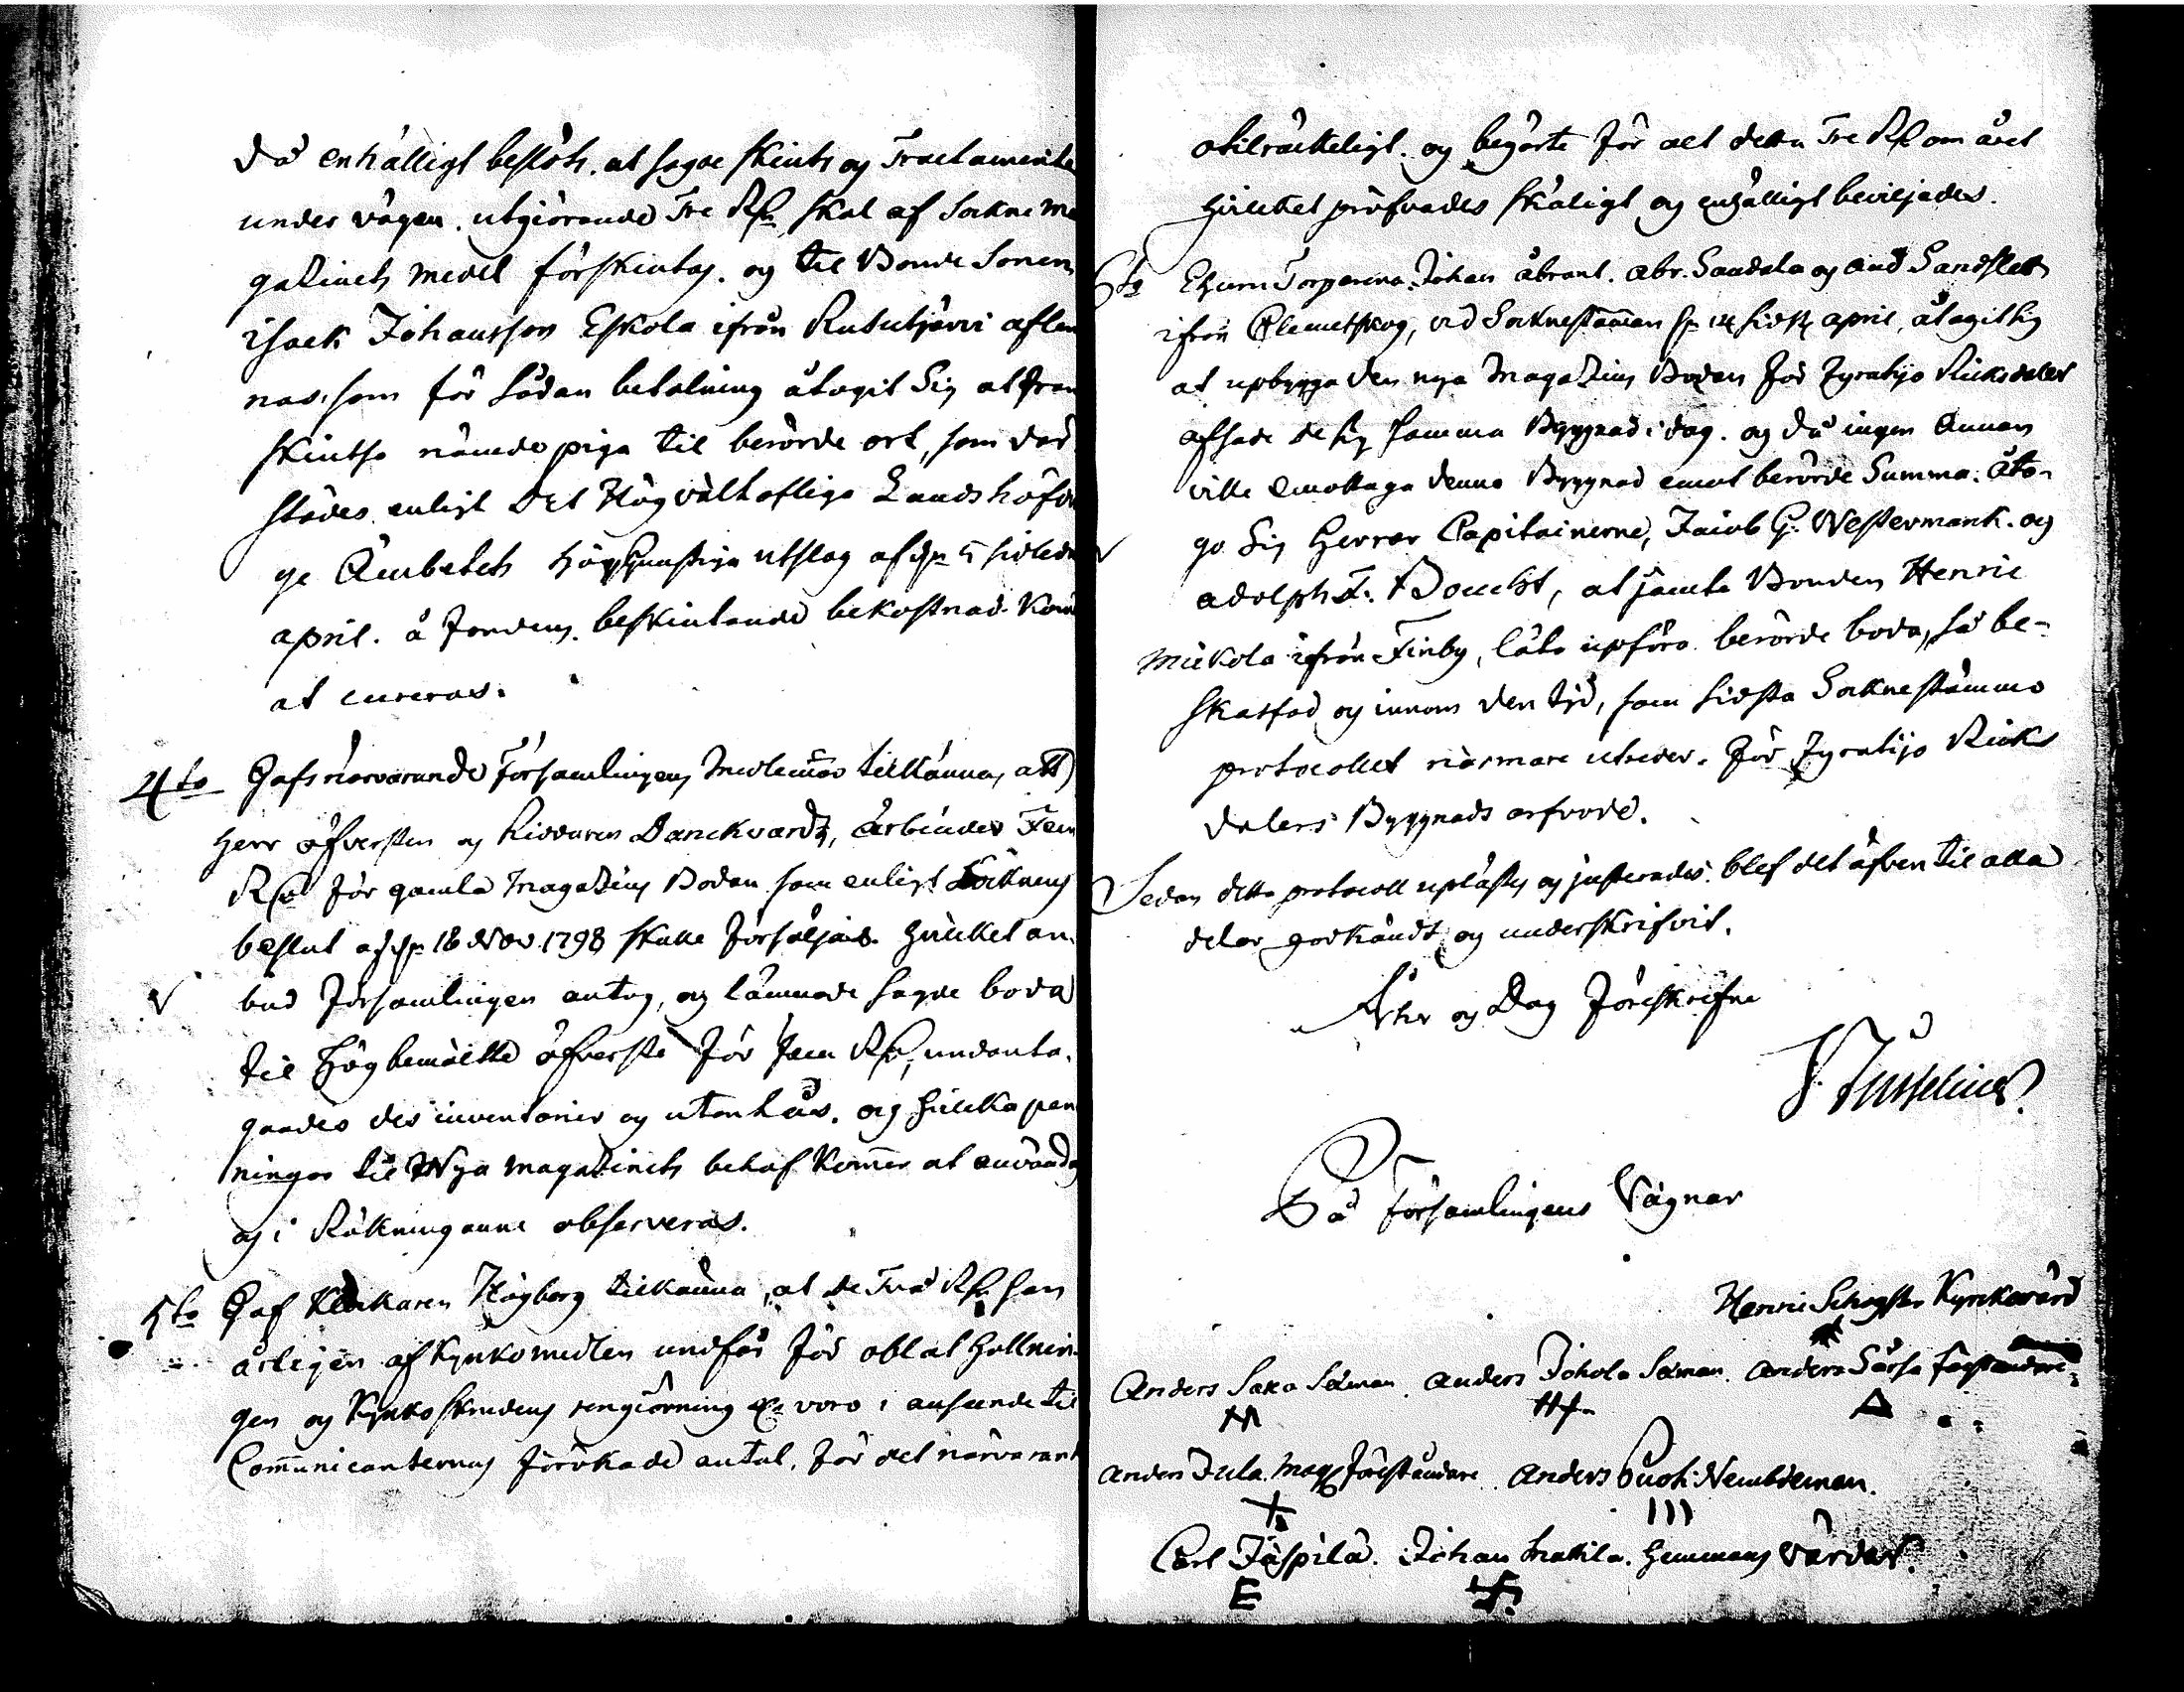 då enhälligt beslöts, at sagde skiuts og Tractamente
under vägen, utgiörande Tre Rd skal af Sokne Ma
gazinets medel förskiutas, og til Bonde Sonen
isack Johansson Eskola ifrån Rutu aflem
nas, som för sådan betalning åtagit Sig at fram
skiutsa nämde piga til berörde ort, som där
städes enligt Det Högvälloflige Landshöfdi
ge Ämbetets höggunstiga utslag af d 5 sidledne
april å fondens beskiutande bekostnad kom
at cureras.
4to Gafs närvarande Församlingens Medlemar tilkänna, att
Herr öfversten og Riddaren Danckvardt, ärbiuder Fem
Rd för gamla Magazins Bodan som enligt Socknens
beslut af d 18 Nov 1798 skulle försäljas. Hvilket an-
bud församlingen antog, og lämnade sagde boda
til Högbemälte öfverste för fem Rd, undanta-
gandes des inventarier og utanlås, og hvilka pen
ningar til Nya magazinets behof komer at användas
og i Räkningarne observeras.
5to Gaf Klåckaren Högberg tilkänna, at de Två Rd han
årligen af Kyrkomedlen undfår för oblat hållnin-
gen og Kyrkoskrudens rengiörning voro i anseende til
Communicanternas förökade antal, för det närvarande
otilräckeligt, og begärte för alt detta Tre Rd om året
hvilcket pröfvades skäligt og enhälligt beviljades.
6to Ehuru Torparena Johan åbrant. Abr. Sandala og And Sandslätt
ifrån Klemetskog, vid Sokne Stämman d 14 sidstl april, åtagit sig
at upbygga den nya Magazins Bodan för Fyratijo Riksdaler
afsade de sig samma Byggnad i dag. og då ingen Annan
ville emottaga denna Byggnad emot berörde Summa. åto-
go Sig Herrar Capitainerne, Jacob G. Westermark. og
Adolph F. Boucht, at jämte Bonden Henric
Mickola ifrån Finby, låta upföra berörde boda, så be-
skaffad og innom den tid, som sidsta Sockne stämmo
protocollet närmare utviser. för fyratijo Riks
dalers Byggnads arfvode.
Sedan detta protocoll uplästes og justerades. blef det äfven til alla
delar godkändt og underskrifvit.
År og Dag föreskrefne
På Församlingens Vägnar
Henric Kyrkovärd
Anders Saxa Sexman. Anders Johola Sexman. Anders Förståndare
Anders Jula. Mag Föreståndare. Anders Nembdeman.
Carl Jäspilä. Johan Mattila. Hemmans Värdar.
E